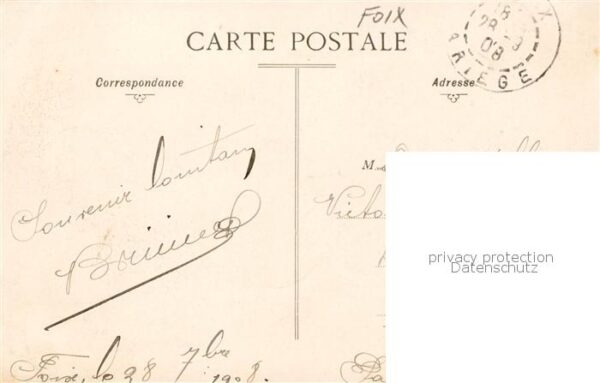 FOIX
CARTE POSTALE
Correspondance
Adresse
28
08
ARIEGE
M
Souvenir lointain
Victo
privacy protection
Datenschutz
Foix, le 28 7bre 1908.